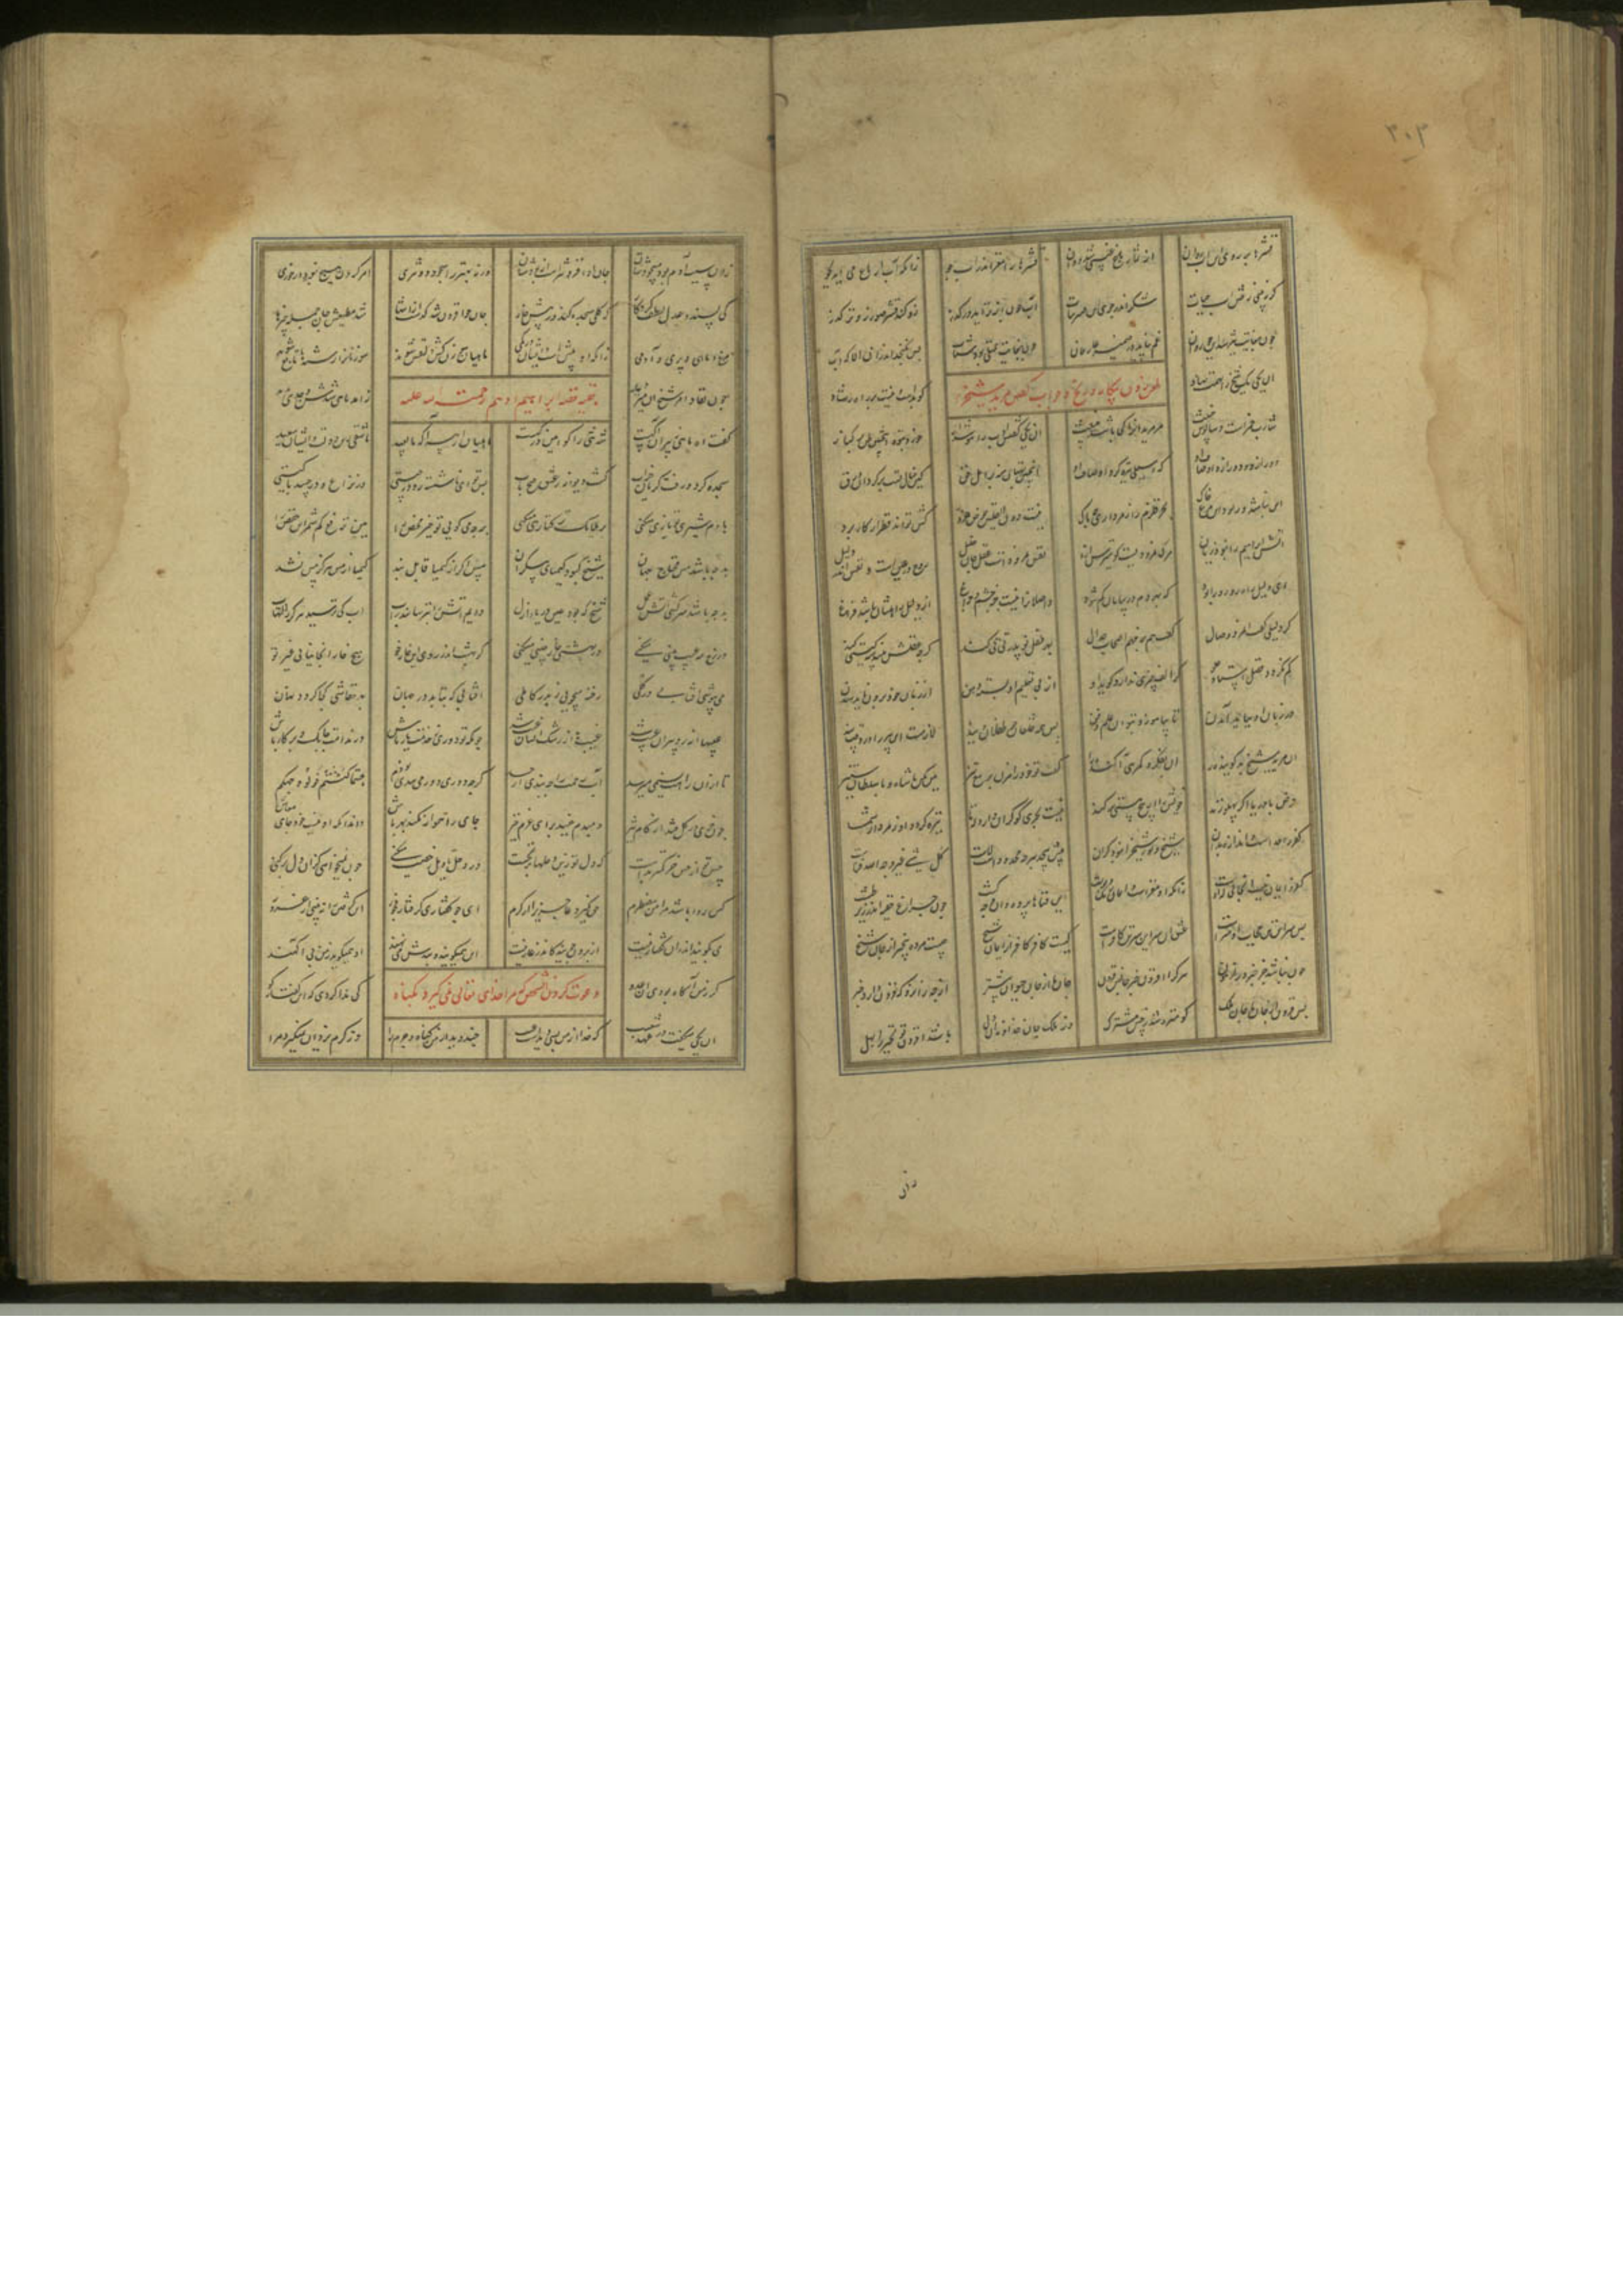 ۳۰۳
قشرها بر روی این آب روان از ثمار باغ غیبی شد دوان قشرها را مغز اندر آب جو زانکه آب از باغ می آید بجو
گر نبینی رفتن آب حیات بنگر اندر جوی این سیر نبات آب چون انبه تر آید در گذر زو کند قشر صور زوتر گذر
چون بغایت تیز شد این جو روان غم نپاید در ضمیر عارفان چون بغایت ممتلی بود و شتاب پس نگنجد اندرو الا که آب
طعن زدن بیگانه در شیخ و جواب گفتن مرید شیخ
آن یکی یک شیخ را تهمت نهاد کو بدست و نیست بر راه رشاد
شارب خمرست و سالوس و خبیث مر مریدان را کجا باشد مغیث آن یکی گفتش ادب را هوش دار خرد نبود اینچنین ظن بر کبار
دور ازو و دور از آن اوصاف او که ز سیلی تیره گردد صاف او اینچنین بهتان منه بر اهل حق این خیال تست برگردان ورق
این نباشد ور بود ای مرغ خاک بحر قلزم را ز مرداری چه باک نیست دون القلتین و حوض خرد کش تواند قطره از کار برد
آتش ابراهیم را نبود زیان هرکه نمرودیست گو میترس ازان نفس نمرودست و عقل و جان خلیل روح در عین است و نفس اندر دلیل
این دلیل راه رهرو را بود که بهر دم در بیابان گم شود واصلان را نیست جز چشم و چراغ از دلیل و راهشان باشد فراغ
گر دلیلی گفت آن مرد وصال گفت بهر فهم اصحاب جدال بهر طفل نو پدر تی تی کند گرچه عقلش هندسه گیتی کند
کم نگردد فضل استاد از علو گر الف چیزی ندارد گوید او از پی تعلیم آن بسته دهن از زبان خود برون باید شدن
در زبان او بباید آمدن تا بیاموزد ز تو آن علم و فن پس همه خلقان چو طفلان ویند لازمست این پیر را در وقت پند
آن مرید شیخ بد گوینده را آن بکفر و گمرهی آکنده را گفت تو خود را مزن بر تیغ تیز هین مکن با شاه و با سلطان ستیز
حوض با دریا اگر پهلو زند خویش را از بیخ هستی بر کند نیست بحری کو کران دارد که تا تیره گردد او ز مردار شما
کفر را حد است و اندازه بدان شیخ و نور شیخ را نبود کران پیش بیحد هرچه محدودست لاست کل شیء غیر وجه الله فناست
کفر و ایمان نیست آنجائی که اوست زانکه او مغزست و این دو رنگ و پوست این فناها پرده آن وجه گشت چون چراغ خفیه اندر زیر طشت
پس سر این تن حجاب آن سرست پیش آن سر این سر تن کافرست کیست کافر کافر از ایمان شیخ چیست مرده بیخبر از جان شیخ
جان نباشد جز خبر در آزمون هرکرا افزون خبر جانش فزون جان ما از جان حیوان بیشتر از چه زان رو که فزون دارد خبر
پس فزون از جان ما جان ملک کو منزه شد ز حس مشترک وز ملک جان خداوندان دل باشد افزون تو تحیر را بهل
زان
زان سبب آدم بود مسجودشان جان او افزونترست از بودشان ورنه بهتر را سجود دون تری امر کردن هیچ نبود در خوری
کی پسندد عدل و لطف کردگار که گلی سجده کند در پیش خار جان چو افزون شد گذشت از انتها شد مطیعش جان جمله چیزها
مرغ و ماهی و پری و آدمی زانکه او بیش است و ایشان در کمی ماهیان سوزن گر دلقش شوند سوزنان را رشته ها تابع شوند
بقیه قصه ابراهیم ادهم رحمت الله علیه
چون نفاذ امر شیخ آن میر دید ز آمد ماهی شدش وجدی پدید
گفت اه ماهی ز پیران آگهست شه تنی را کو لعین درگهست ماهیان از پیر آگه ما بعید ما شقی زین دولت و ایشان سعید
سجده کرد و رفت گریان و خراب گشت دیوانه ز عشق فتح باب پس تو ای ناشسته رو در چیستی در نزاع و در حسد با کیستی
با دم شیری تو بازی میکنی بر ملایک ترک تازی میکنی بد چه می گویی تو خیر محض را هین ترفع کم شمر آن خفض را
بد چه باشد مس محتاج مهان شیخ که بود کیمیای بیکران مس اگر از کیمیا قابل نبد کیمیا از مس هرگز مس نشد
بد چه باشد سرکشی آتش عمل شیخ که بود عین دریای ازل دایم آتش را بترسانند ز آب آب کی ترسید هرگز ز التهاب
در رخ مه عیب بینی میکنی در بهشتی خار چینی میکنی گر بهشت اندر روی تو خار جو هیچ خار آنجا نیابی غیر تو
می بپوشی آفتابی در گلی رخنه میجویی ز بدر کاملی آفتابی که بتابد در جهان بهر خفاشی کجا گردد نهان
عیبها از رد پیران عیب شد غیبها از رشک ایشان غیب شد چونکه تو دوری ز خدمت یار باش در ندامت چابک و بر کار باش
تا ازان راهت نسیمی میرسد آب رحمت را چه بندی از حسد گرچه دوری دور می جنبان تو دم حیث ما کنتم فولوا وجهکم
چون خری در گل فتد از گام تیز دم بدم جنبد برای عزم خیز جای را هموار نکند بهر باش داند آنکه او نیست آن جای معاش
حس تو از حس خر کمتر بدست که دل تو زین وحلها بر نجست در وحل تاویل رخصت میکنی چون نمیخواهی کزان دل بر کنی
کین روا باشد مرا من مضطرم حق نگیرد عاجزی را از کرم ای چو کفتاری گرفتار فجور این گرفتن را نبینی از غرور
می بگویند اندران کفتار نیست از برون جویید کاندر غار نیست این همیگویند و بندش می نهند او همیگوید ز من بی آگهند
گر ز من آگاه بودی این عدو کی ندا کردی که آن کفتار کو
دعوت کردن شخصی که مرا خدای تعالی نمی گیرد بگناه
آن یکی میگفت در عهد شعیب که خدا از من بسی دیدست عیب چند دید از من گناه و جرمها وز کرم یزدان نمیگیرد مرا